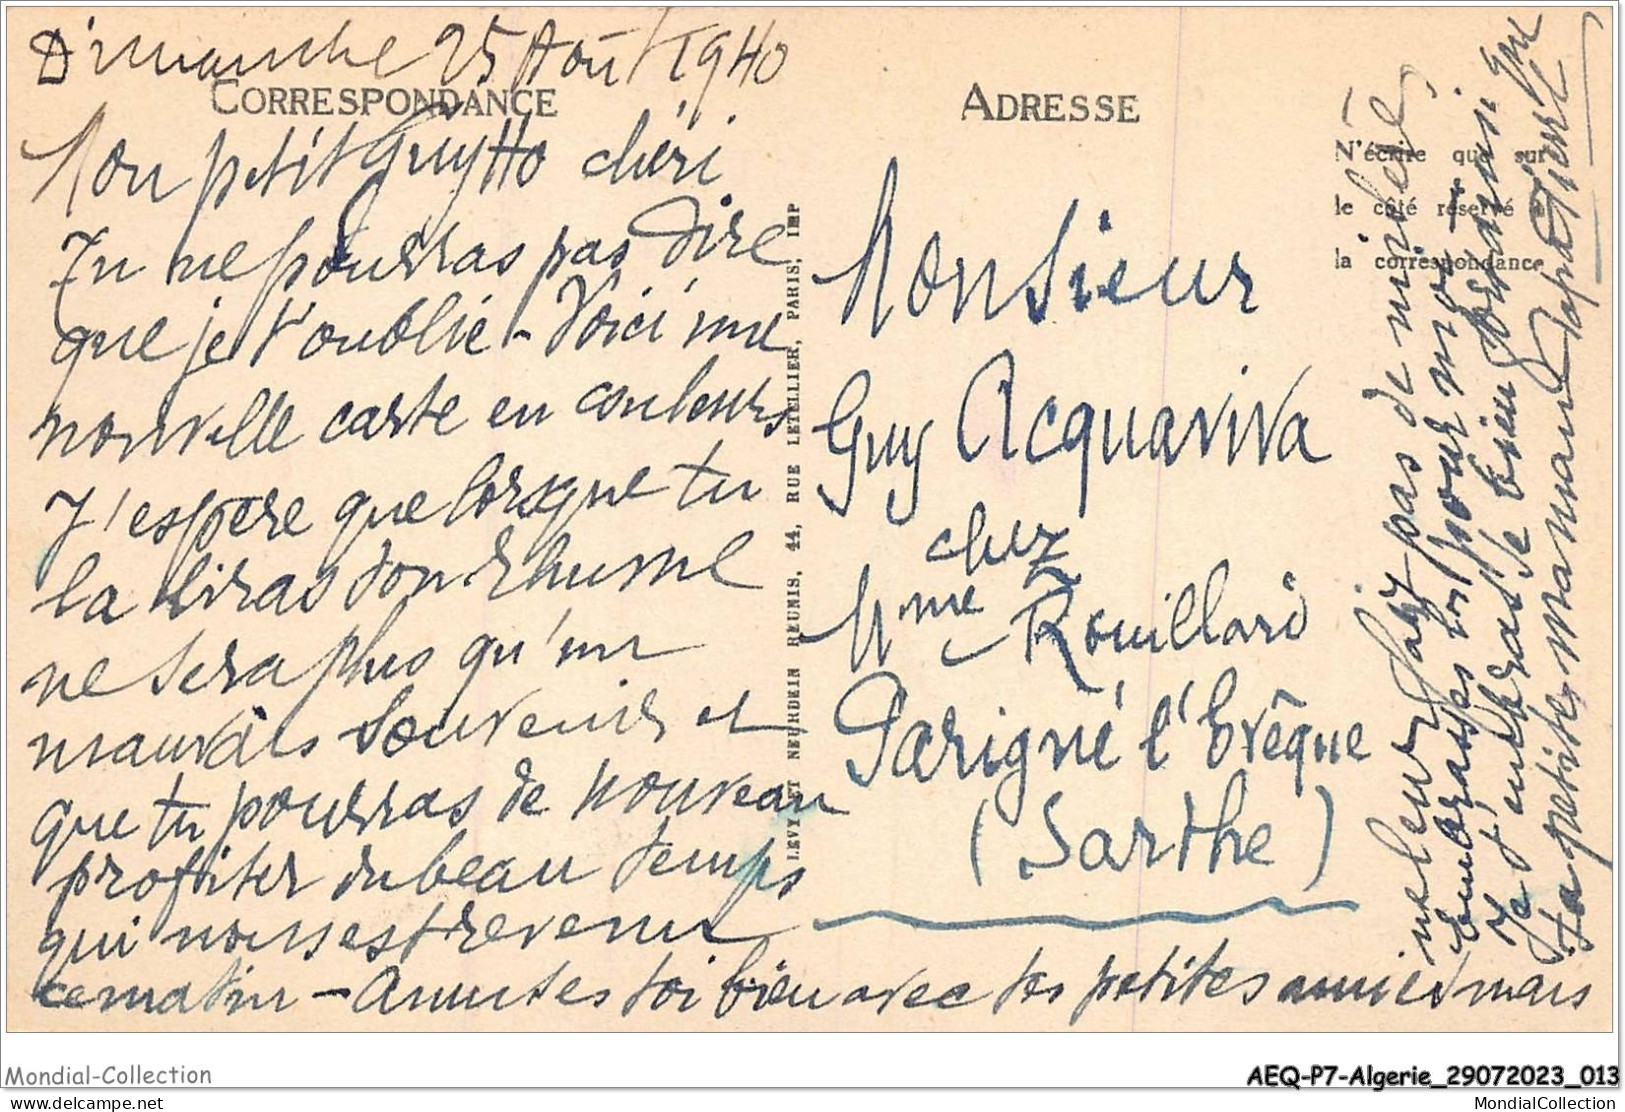 Dimanche 25 Août 1940
CORRESPONDANCE
Mon petit Guytto chéri
Tu ne pourras pas dire
que je t'oublie - Voici une
nouvelle carte en couleurs
J'espère que lorsque tu
la liras ton rhume
ne sera plus qu'un
mauvais souvenir et
que tu pourras de nouveau
profiter du beau temps
qui nous est revenu
ce matin - Amuses toi bien avec tes petites amies mais
ne leur fais pas de misères,
Embrasses les pour moi -
Je t'embrasse bien fort
Ta petite maman
LEVY ET NEURDEIN REUNIS, 44, RUE LETELLIER, PARIS, IMP
ADRESSE
N'écrire que sur
le côté réservé à
la correspondance
Monsieur
Guy Acquaviva
chez
Mme Rouillard
Parigné l'Evêque
(Sarthe)
Mondial-Collection
AEQ-P7-Algerie_29072023_013
delcampe.net
MondialCollection